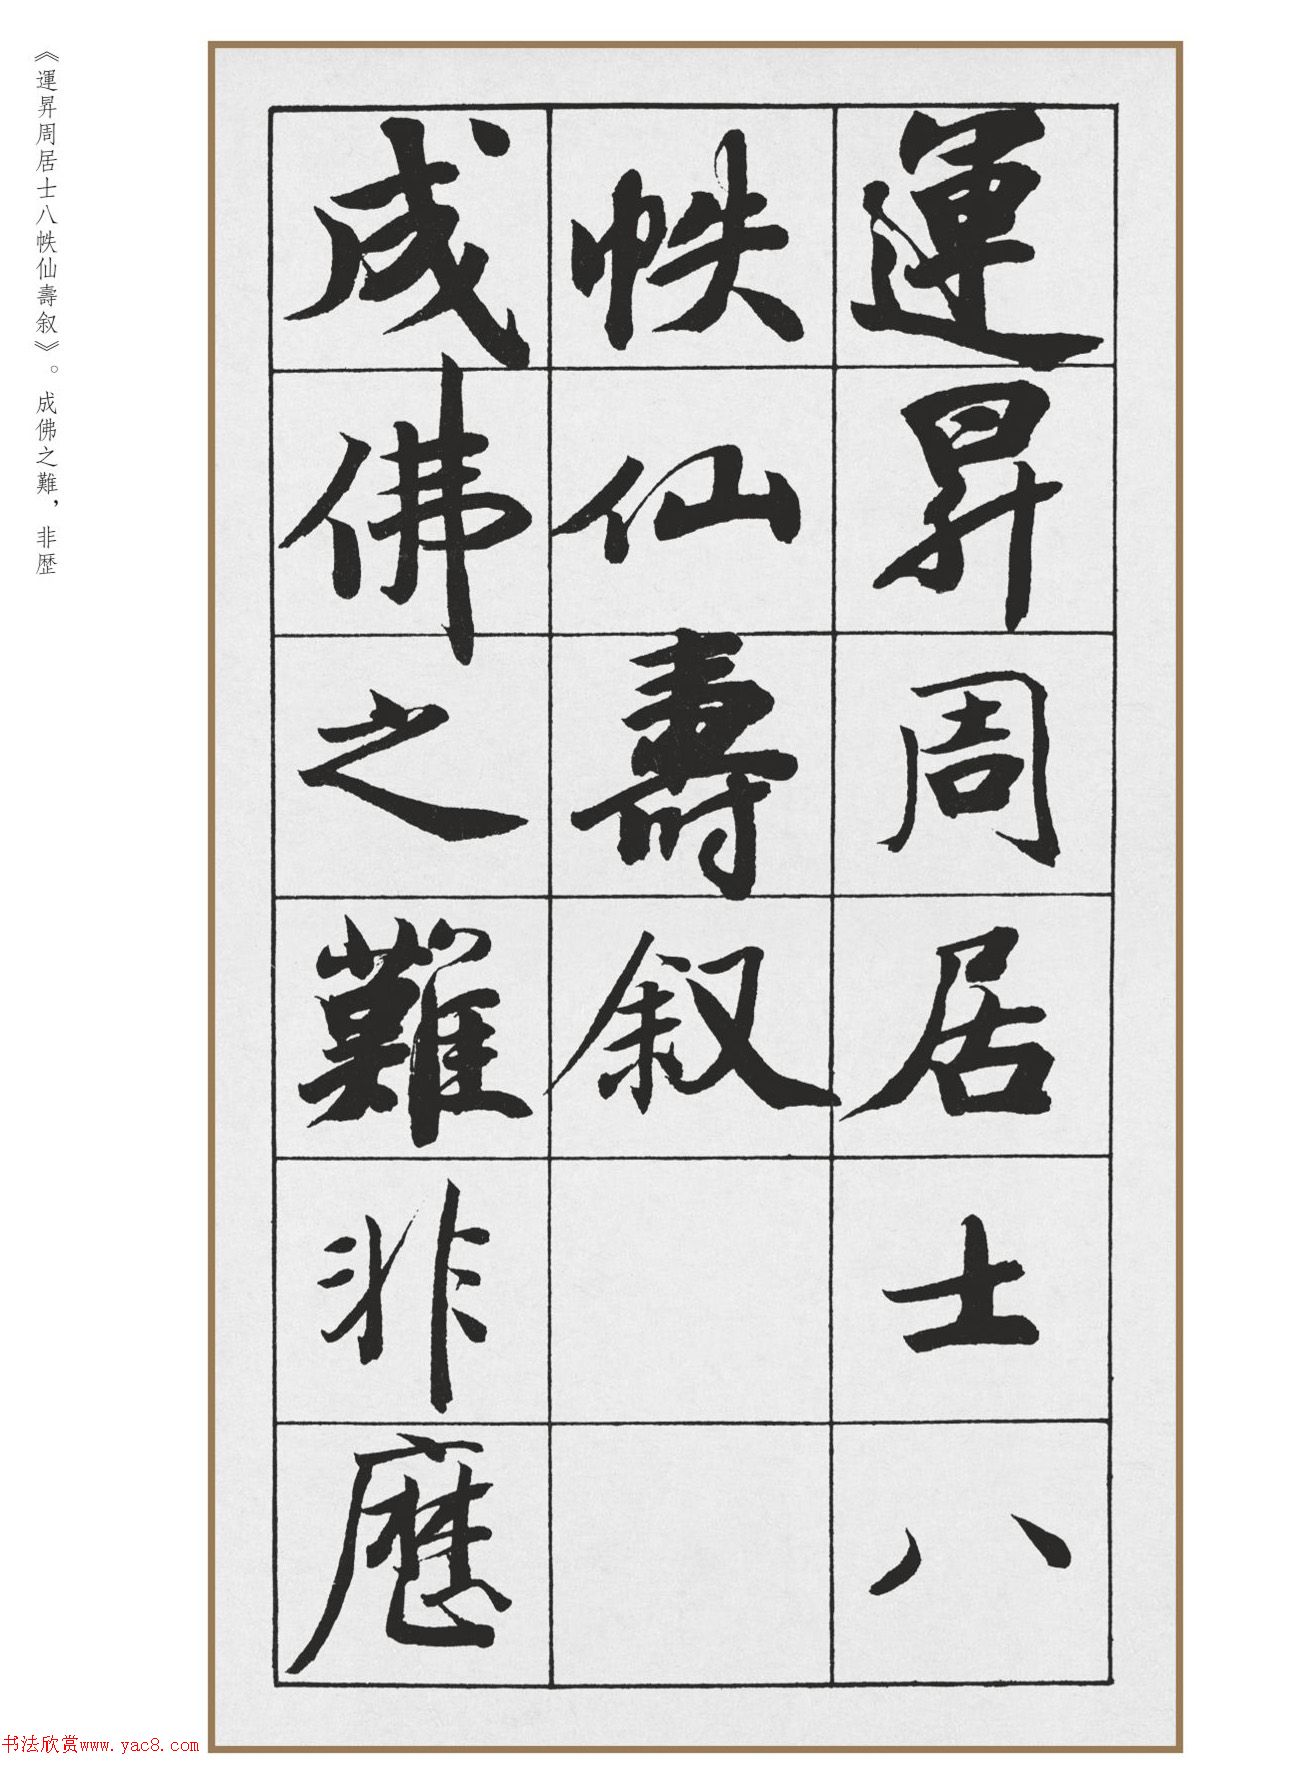 運昇周居士八
帙仙壽叙
成佛之難非歷
《運昇周居士八帙仙壽叙》。成佛之難，非歷
书法欣赏www.yac8.com